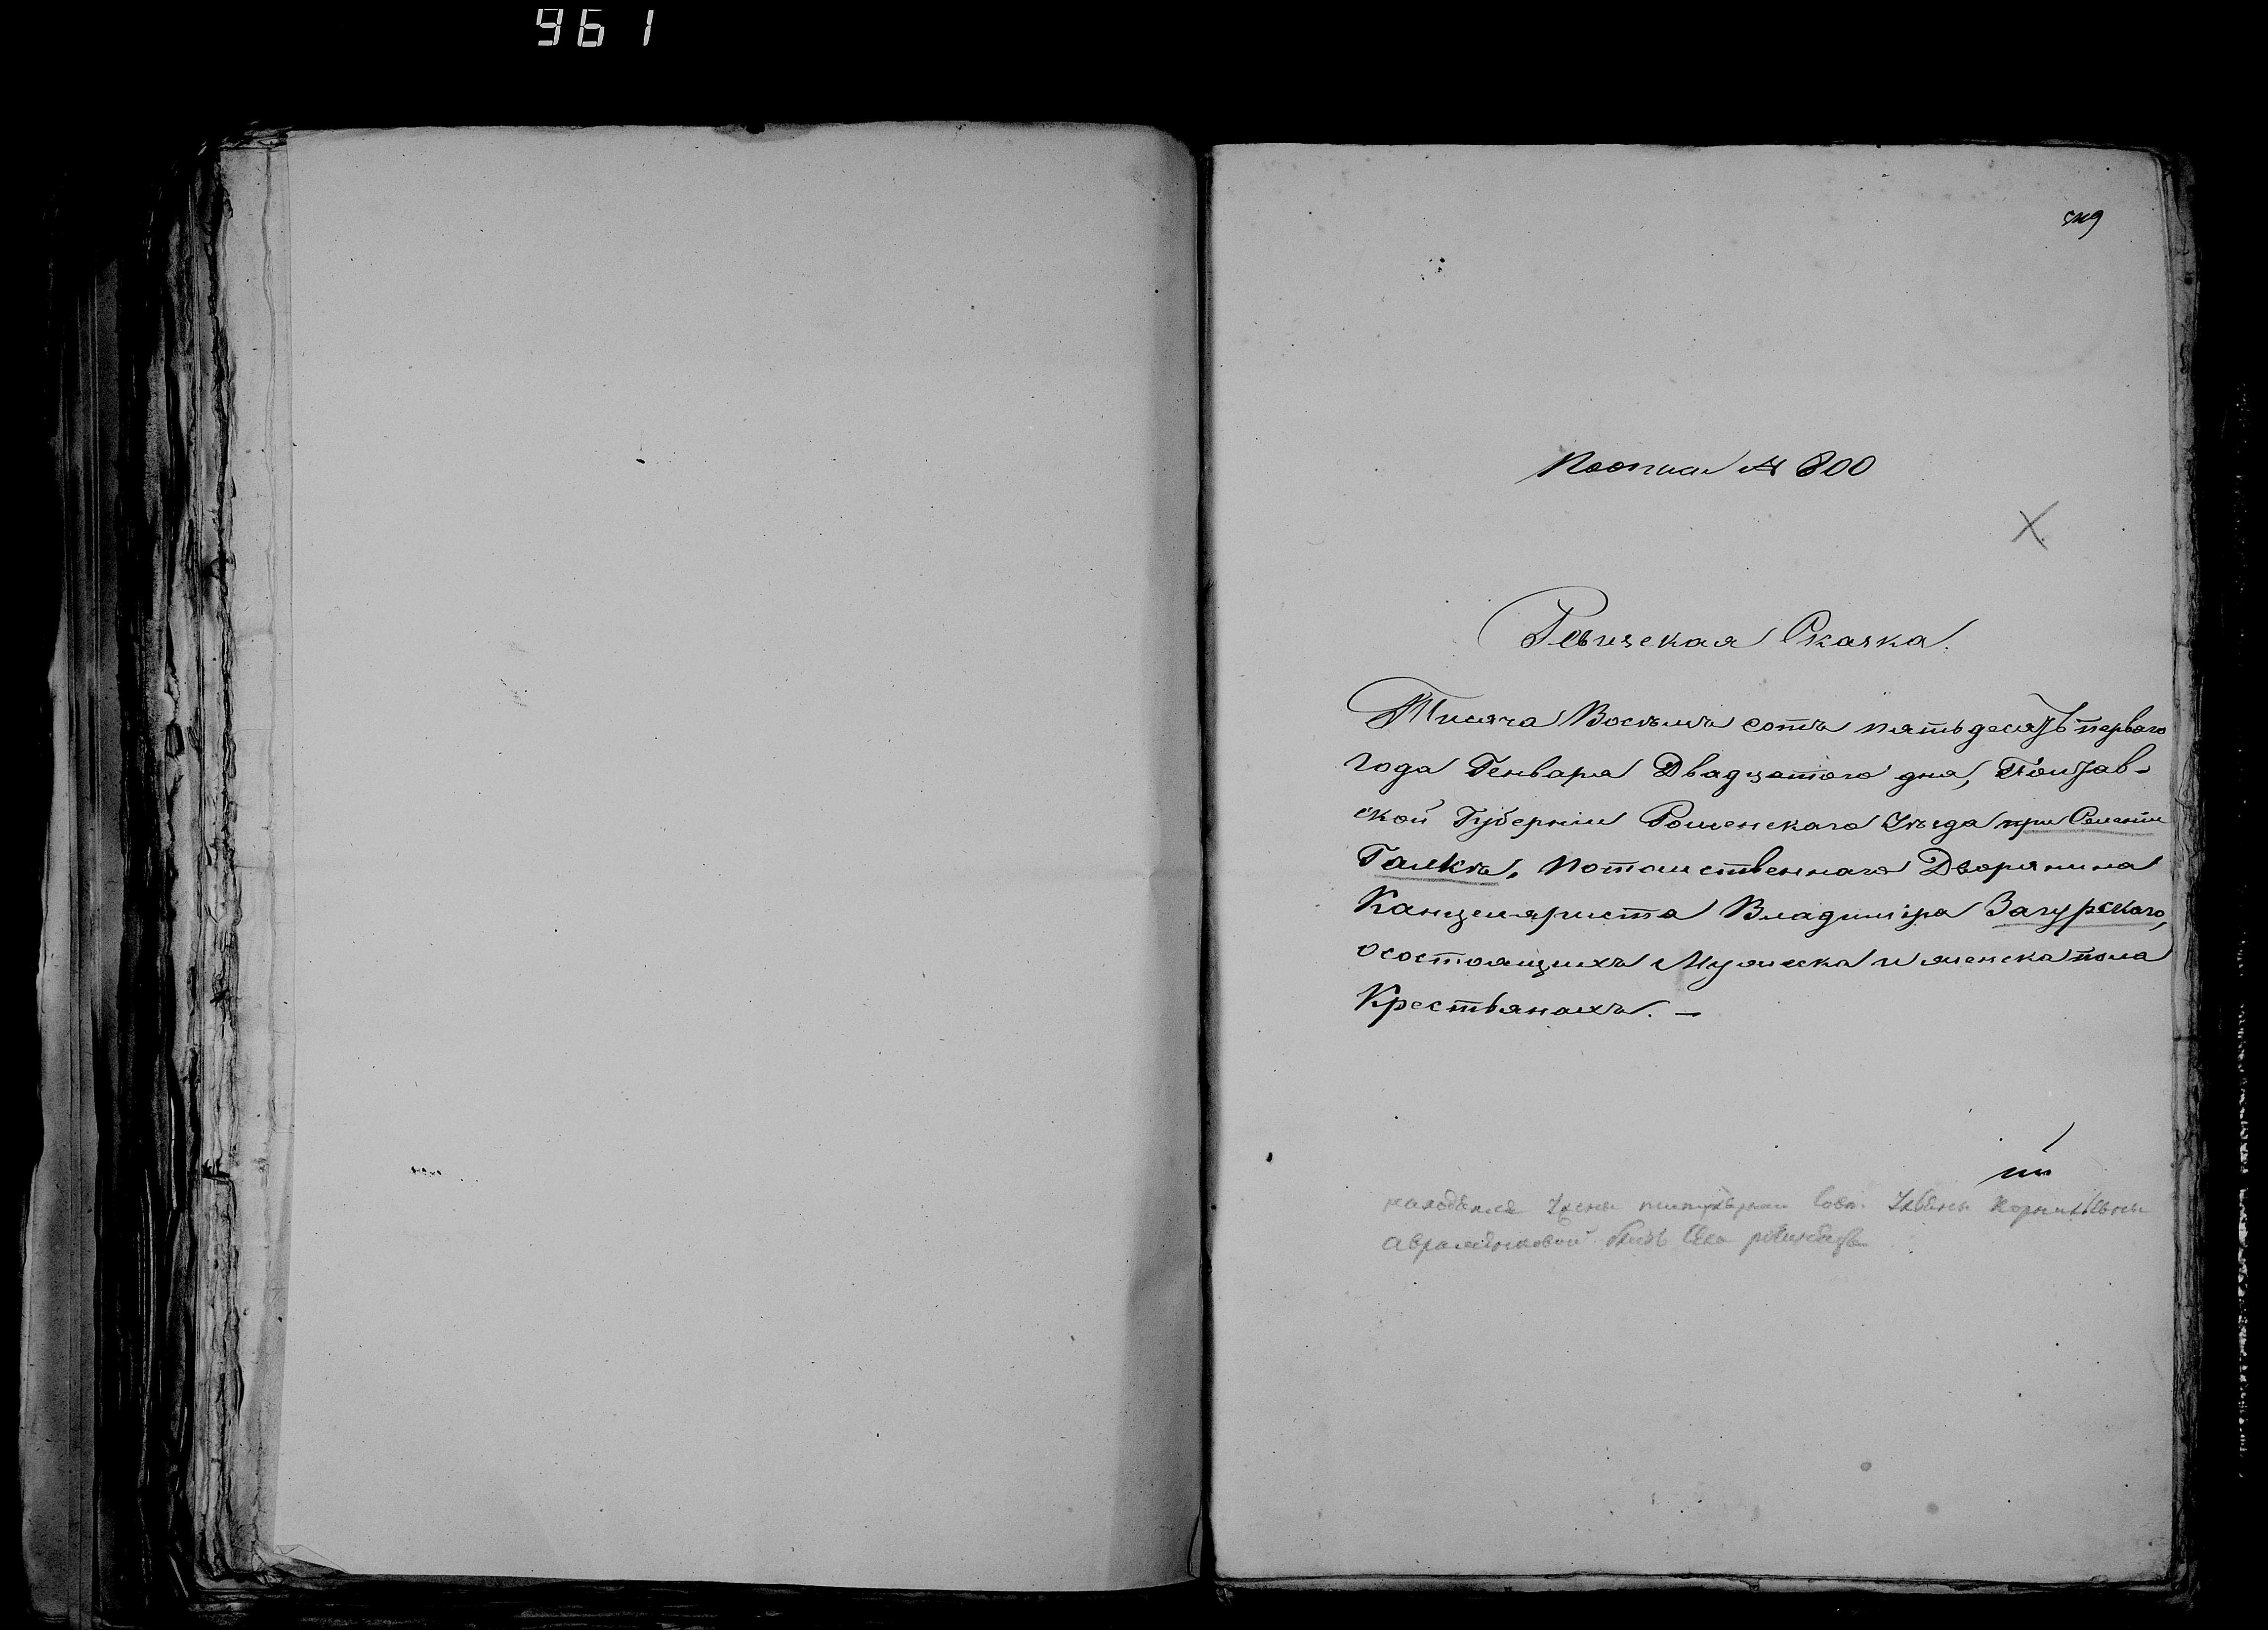 961
По описи № 800
Ревизская Сказка.
Тисяча Восъмъ сотъ пятьдесятъ перваго
года Генваря Двадцатого дня, Полтав-
ской Губернии Роменскаго Уѣзда при Селении
Галкѣ, потомственнаго Дворянина
Канцеляриста Владиміра Загурскаго,
о состоящихъ Мужеска и женска пола
Крестьянахъ. —
находился